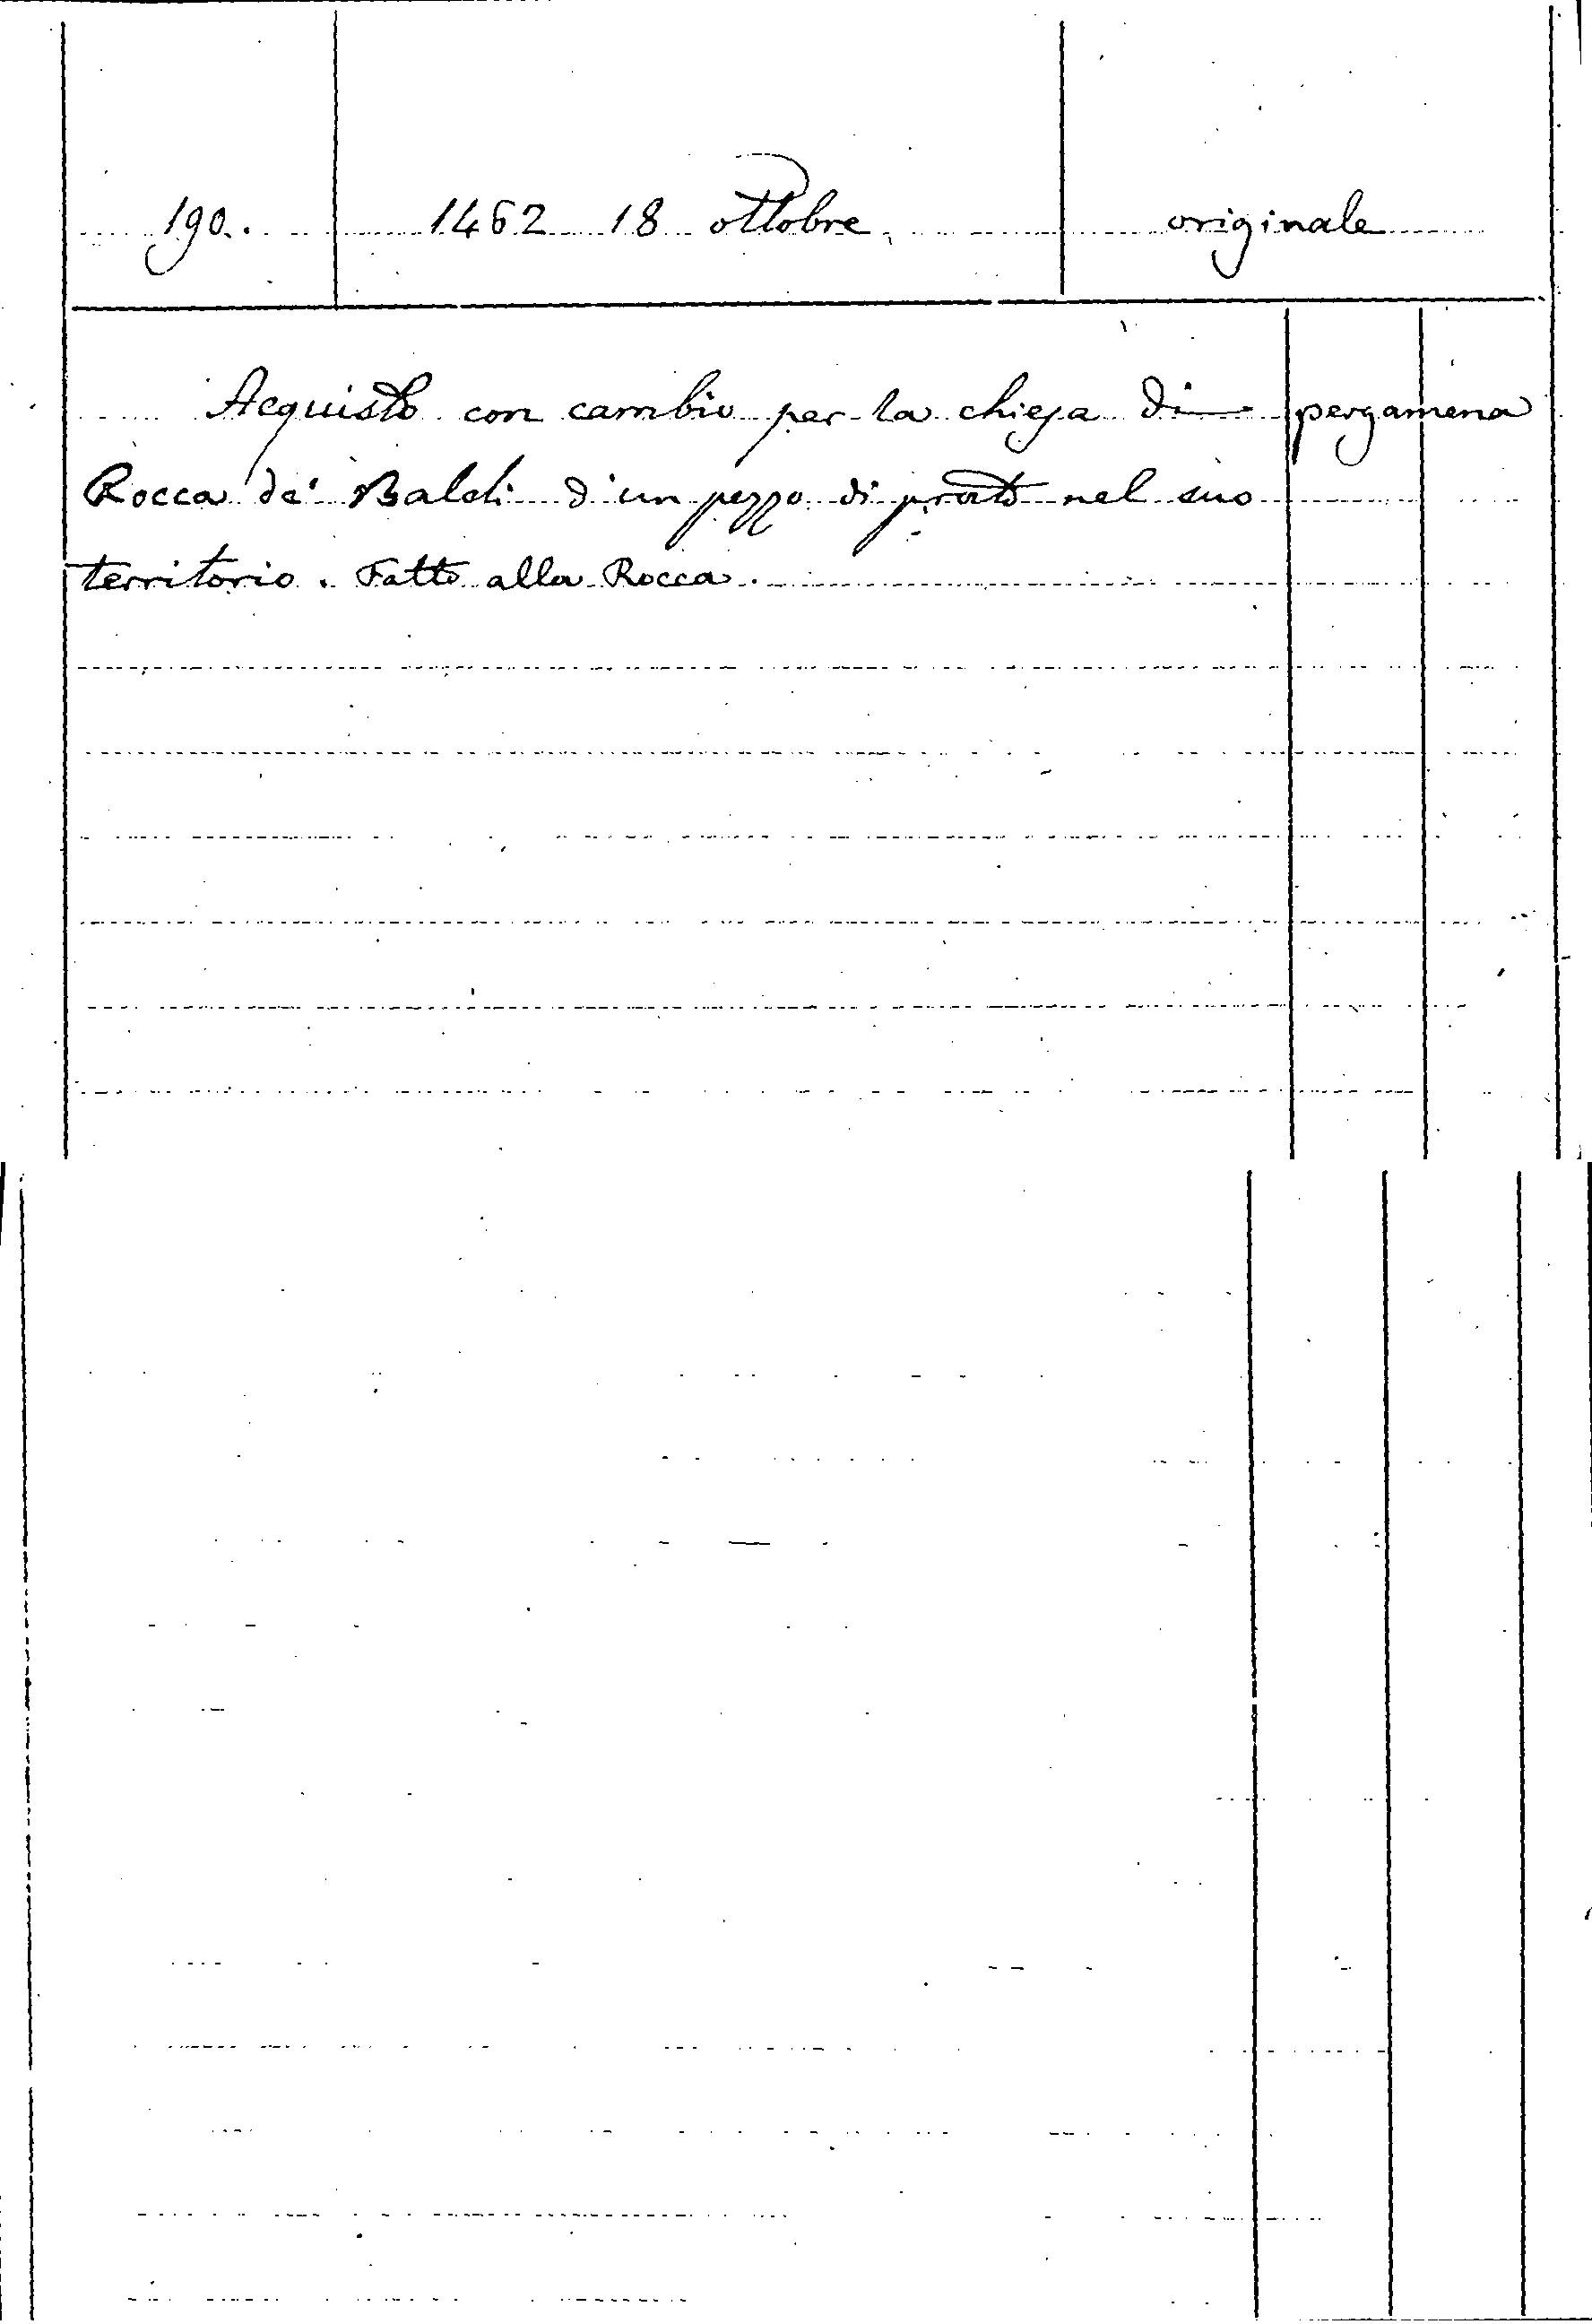 190. 1462 18 ottobre originale
Acquisto con cambio per la chiesa di pergamena
Rocca de' Baldi d'un pezzo di prato nel suo
territorio. Fatto alla Rocca.